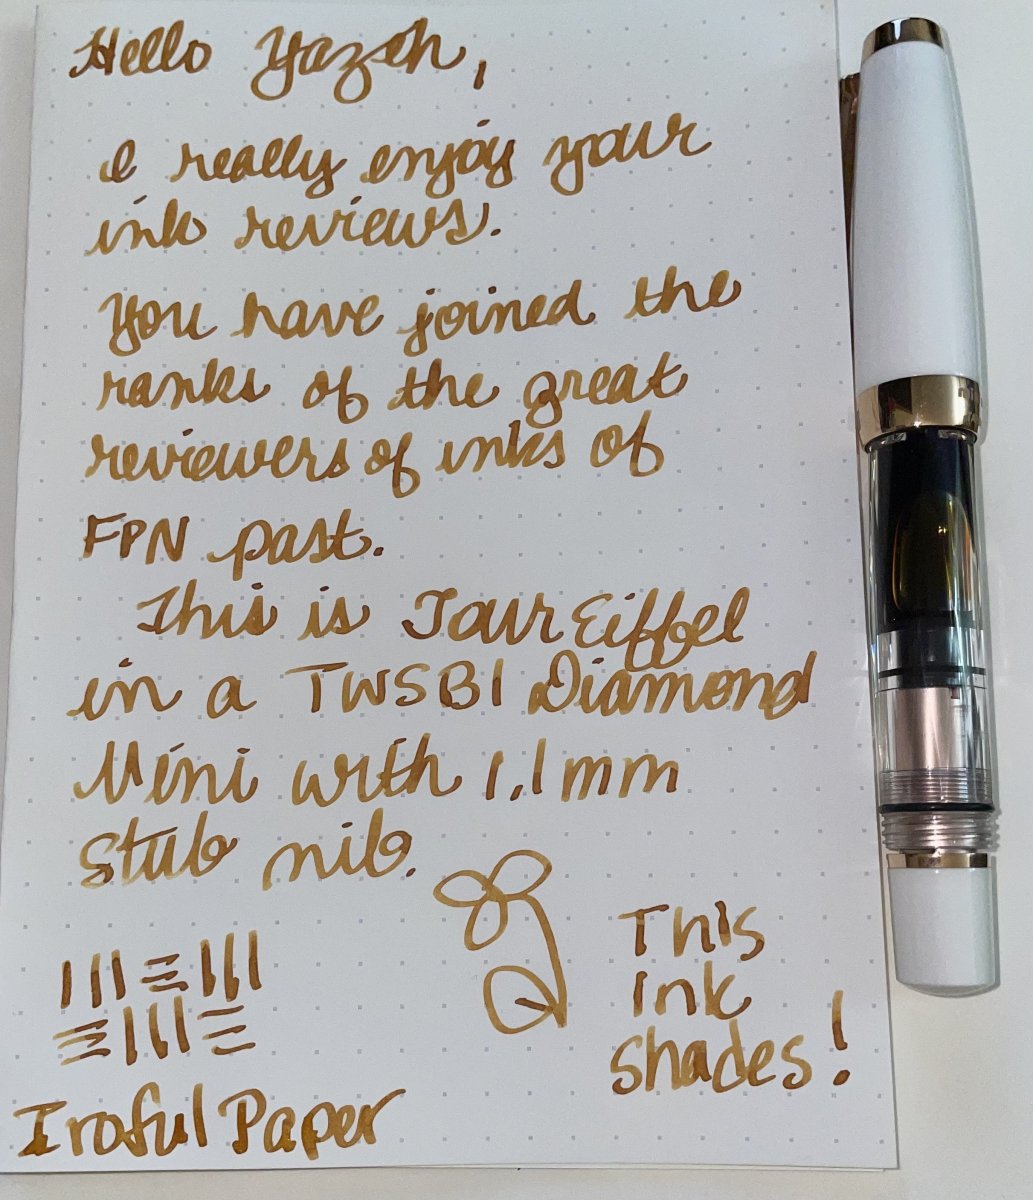 Hello Yazeh,
I really enjoy your
ink reviews.
You have joined the
ranks of the great
reviewers of inks of
FPN past.
This is Tour Eiffel
in a TWSBI Diamond
Mini with 1.1mm
stub nib.
This
Ink
Shades!
Iroful Paper